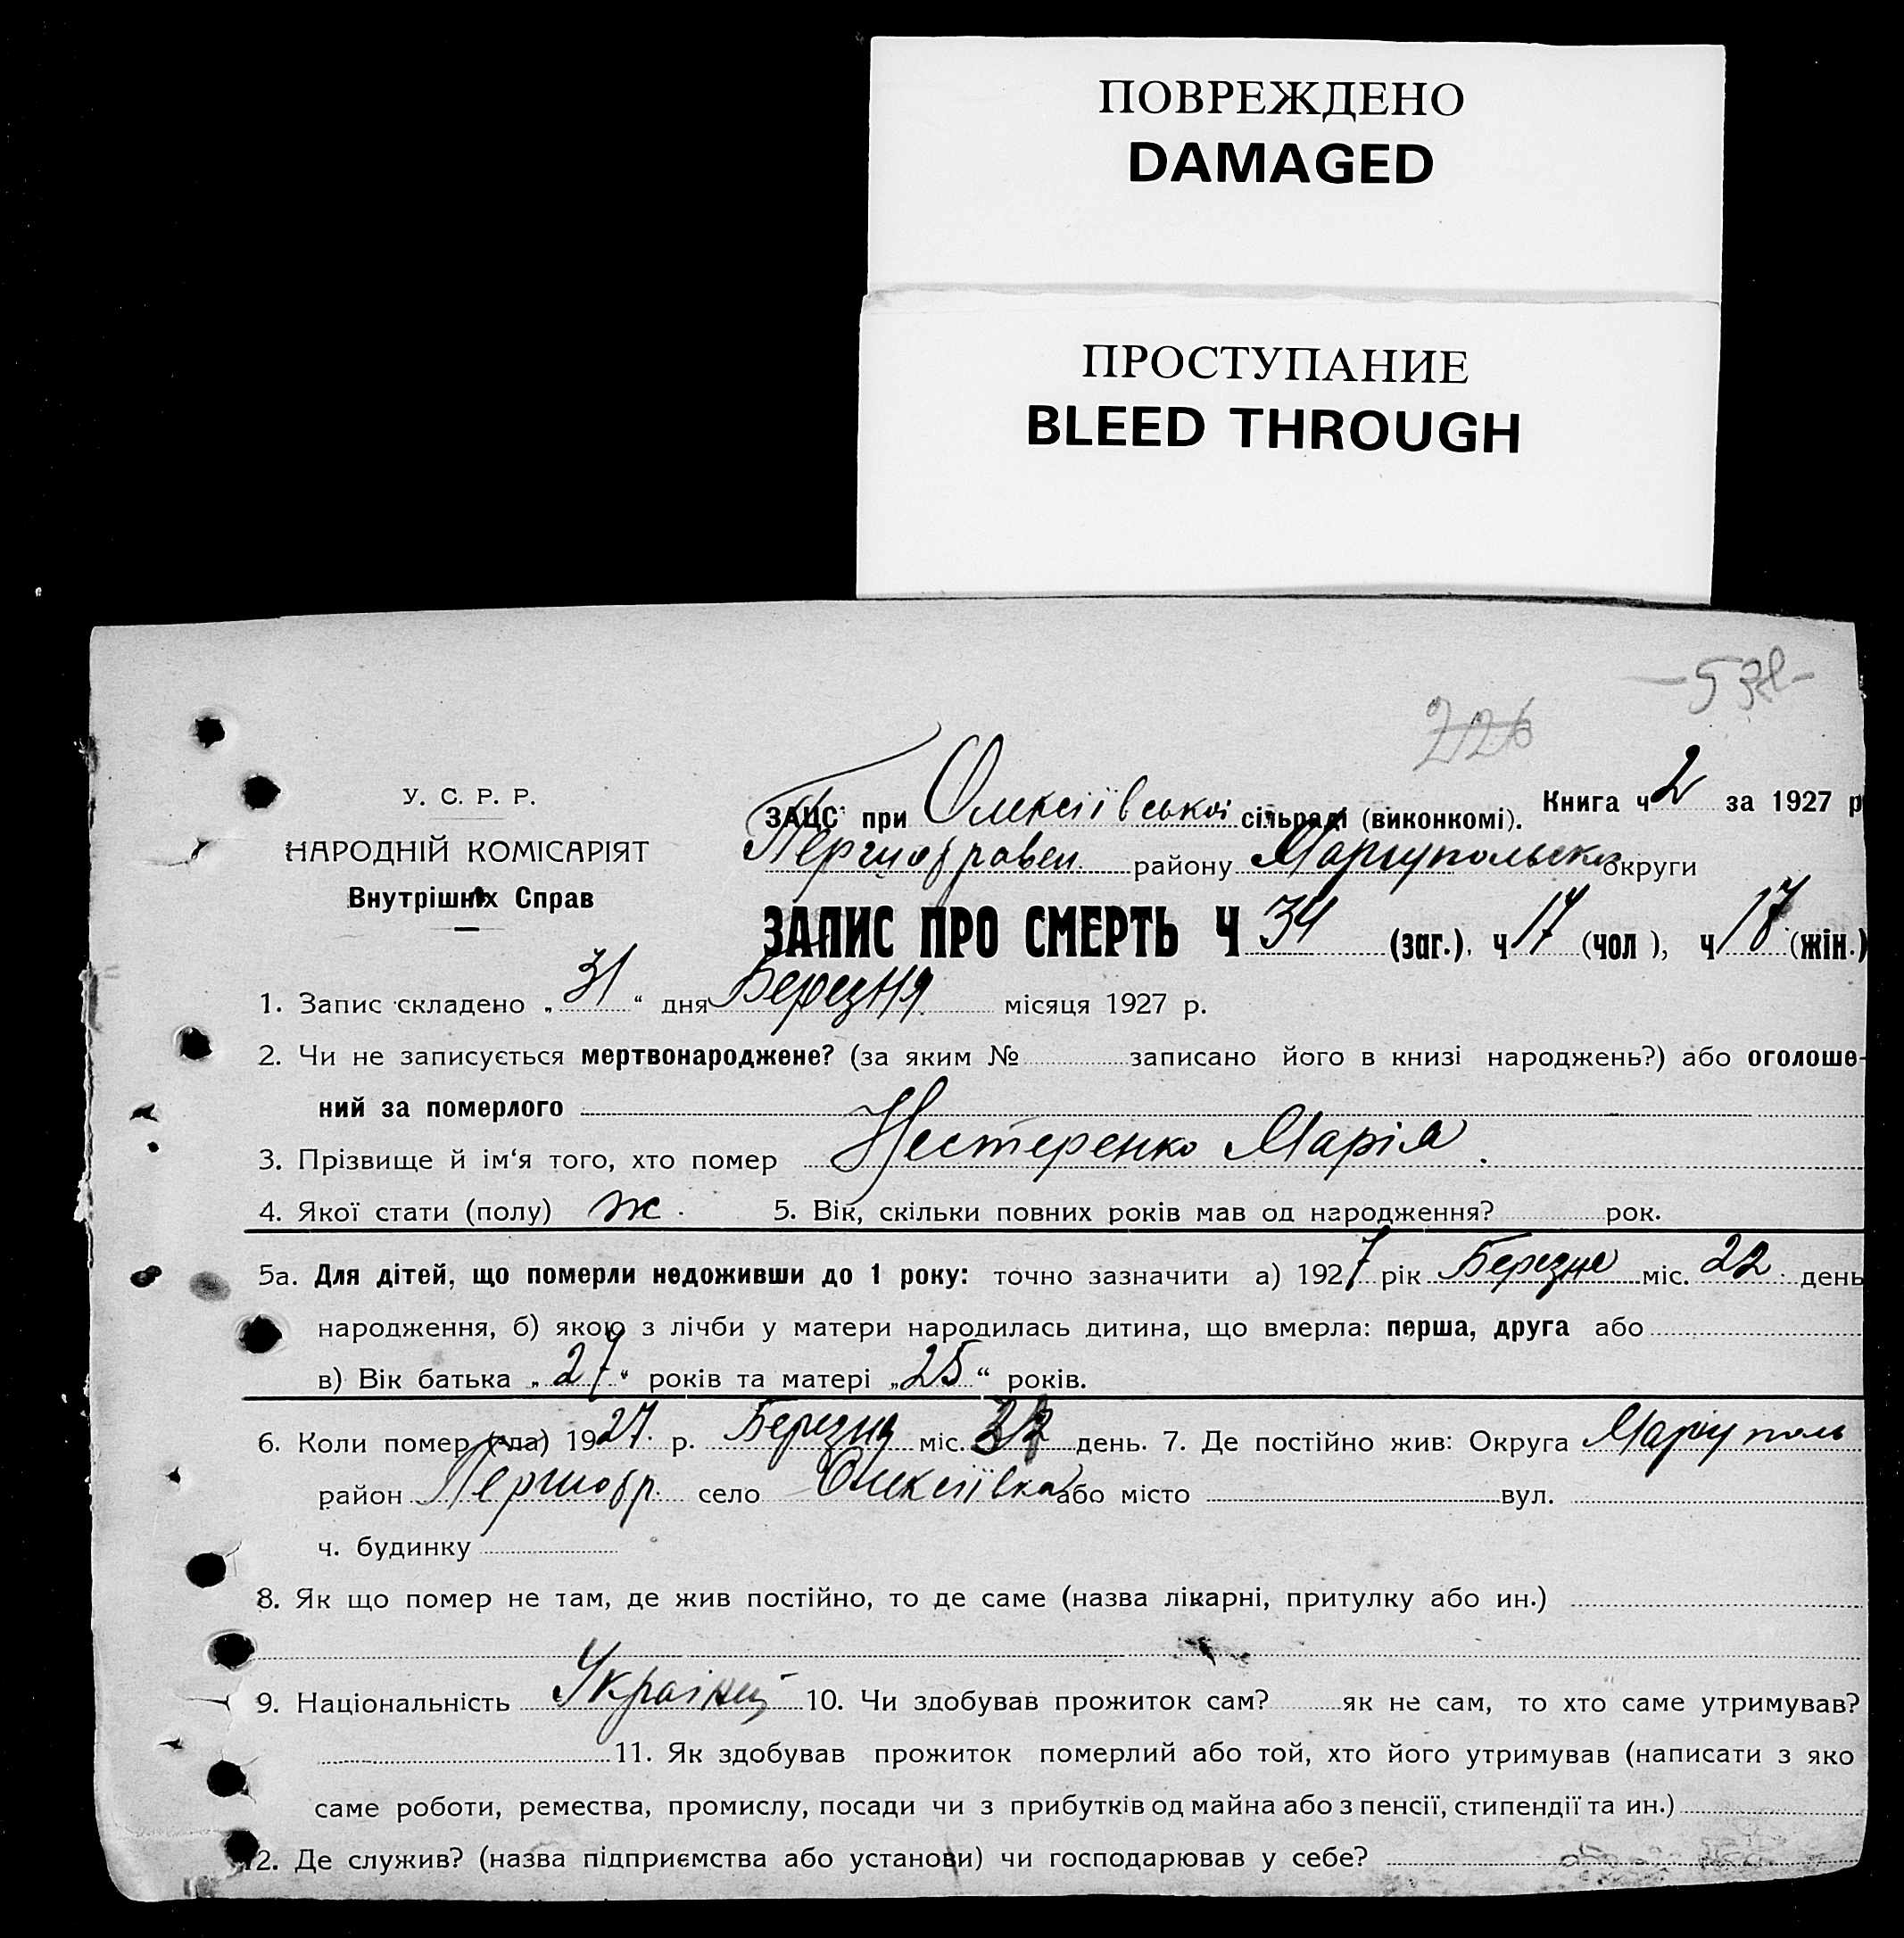 ПОВРЕЖДЕНО
DAMAGED
ПРОСТУПАНИЕ
BLEED THROUGH
226
У. С. Р. Р.
НАРОДНІЙ КОМІСАРІЯТ
Внутрішніх Справ
ЗАЦС при Олексіївській сільраді (виконкомі). Книга ч 2 за 1927 р
Першотравен району Маріупольської округи
ЗАПИС ПРО СМЕРТЬ Ч 34 (заг.), ч 17 (чол), ч 17 (жін.)
1. Запис складено „31“ дня Березня місяця 1927 р.
2. Чи не записується мертвонароджене? (за яким № записано його в книзі народжень?) або оголоше-
ний за померлого
3. Прізвище й ім'я того, хто помер Нестеренко Марія.
4. Якої стати (полу) ж. 5. Вік, скільки повних років мав од народження? рок.
5а. Для дітей, що померли недоживши до 1 року: точно зазначити а) 1927 рік Березня міс. 22 день
народження, б) якою з лічби у матери народилась дитина, що вмерла: перша, друга або
в) Вік батька „27“ років та матері „25“ років.
6. Коли помер (-ла) 1927. р. Березня міс. день. 7. Де постійно жив: Округа Маріуполь
район Першотр. село Олексіївка або місто вул.
ч. будинку
8. Як що помер не там, де жив постійно, то де саме (назва лікарні, притулку або ин.)
9. Національність Українц 10. Чи здобував прожиток сам? як не сам, то хто саме утримував?
11. Як здобував прожиток померлий або той, хто його утримував (написати з яко
саме роботи, ремества, промислу, посади чи з прибутків од майна або з пенсії, стипендії та ин.)
2. Де служив? (назва підприємства або установи) чи господарював у себе?